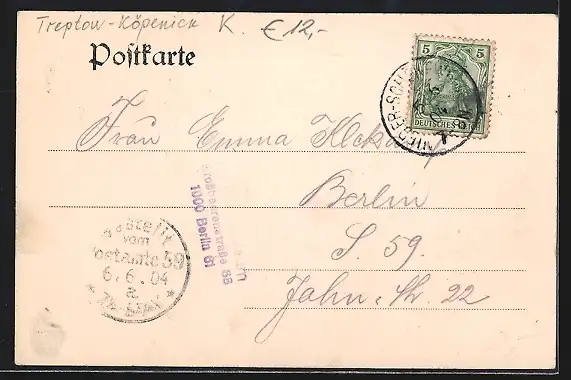 Treptow-Köpenick K. €12,-
Postkarte
5 5
DEUTSCHES REICH
NIEDER-SCH
Frau Emma
Berlin
S. 59.
Jahn-Str. 22
Großbeerenstraße 88
1000 Berlin 61
Bestellt
vom
Postamte 59
6.6.04